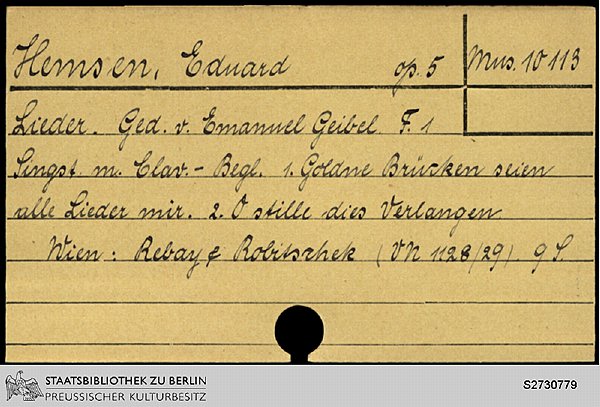 Hemsen, Eduard op. 5 Mus. 10 113
Lieder. Ged. v. Emanuel Geibel. F. 1
Singst. m. Clav.- Begl. 1. Goldne Brücken seien
alle Lieder mir. 2. O stille dies Verlangen
Wien: Rebay & Robitschek (VN 1128/29). 9 S.
STAATSBIBLIOTHEK ZU BERLIN
PREUSSISCHER KULTURBESITZ
S2730779